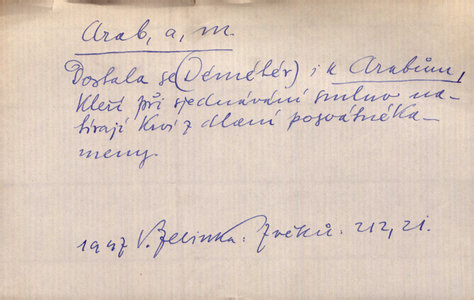 Arab, a, m.
Dostala se (Démétér) i k Arabům,
kteří při sjednávání smluv na-
tírají krví z dlaní posvátné ka-
meny.
1947 V. Zelinka. Zvěků. 212, 21.